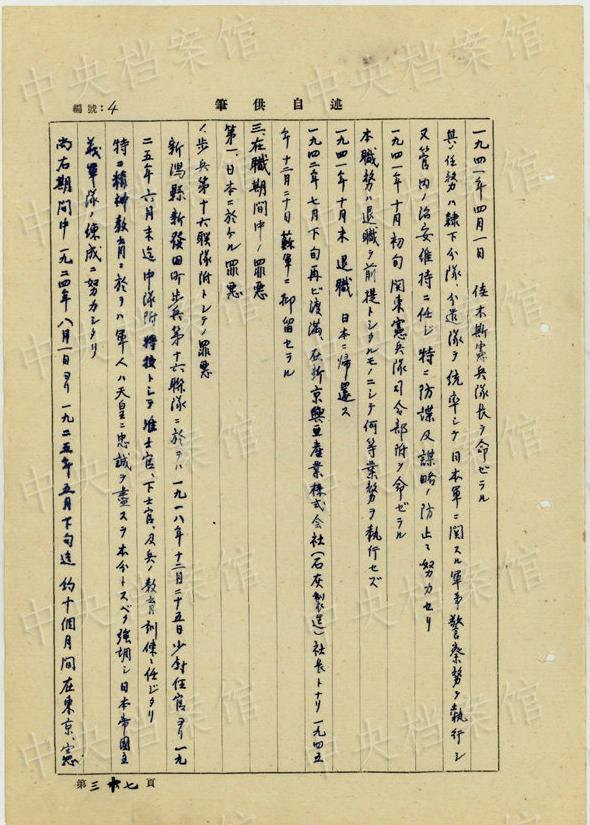 述自供筆
編號：4
一九四一年四月一日 佳木斯憲兵隊長ヲ命ゼラル
其ノ任務ハ隷下分隊、分遣隊ヲ統率シテ日本軍ニ関スル軍事警察務ヲ執行シ
又管内ノ治安維持ニ任ジ特ニ防諜及謀略ノ防止ニ努力セリ
一九四一年十月初旬関東憲兵隊司令部附ヲ命ゼラル
本職務ハ退職ヲ前提トシタルモノニシテ何等業務ヲ執行セズ
一九四一年十月末 退職 日本ニ帰還ス
一九四二年七月下旬再ビ渡満、在新京興亜産業株式会社（石灰製造）社長トナリ一九四五
年十二月二十日蘇軍ニ抑留セラル
三、在職期間中ノ罪悪
第一、日本ニ於ケル罪悪
1、歩兵第十六聯隊附トシテノ罪悪
新潟縣新發田町歩兵第十六聯隊ニ於テハ一九一八年十二月二十五日少尉任官ヨリ一九
二五年六月末迄中隊附将校トシテ准士官、下士官、及兵ノ教育訓練ニ任ジタリ
特ニ精神教育ニ於テハ軍人ハ天皇ニ忠誠ヲ盡スヲ本分トスベク強調シ日本帝国主
義軍隊ノ練成ニ努力シタリ
尚右期間中一九二四年八月一日ヨリ一九二五年五月下旬迄約十個月間在東京、憲
第三十七頁
中央档案馆